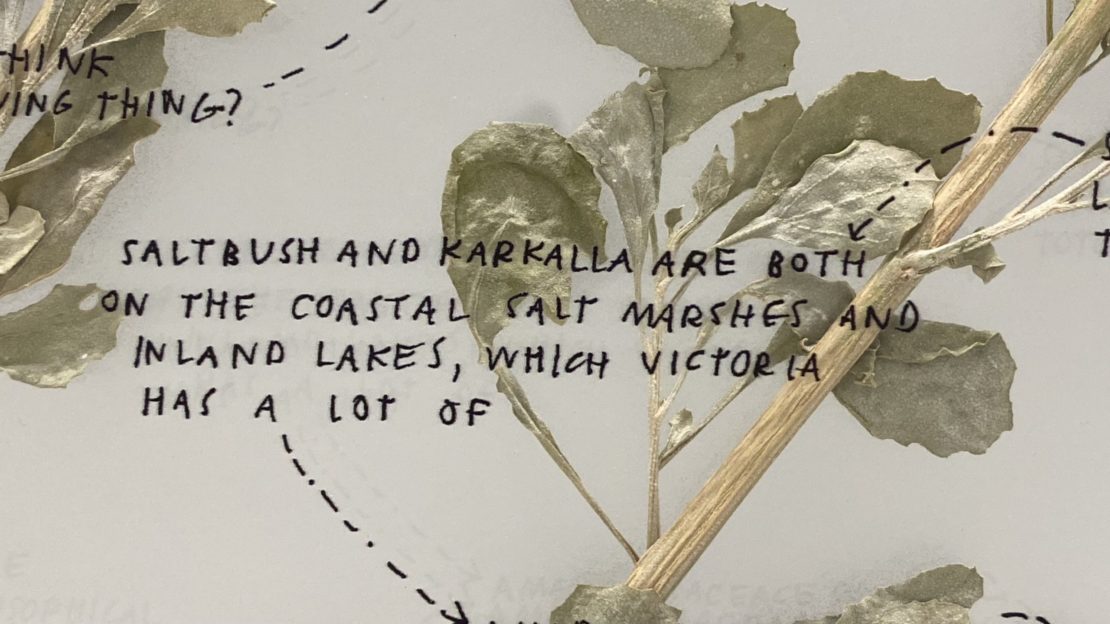 THING?
SALTBUSH AND KARKALLA ARE BOTH
ON THE COASTAL SALT MARSHES AND
INLAND LAKES, WHICH VICTORIA
HAS A LOT OF